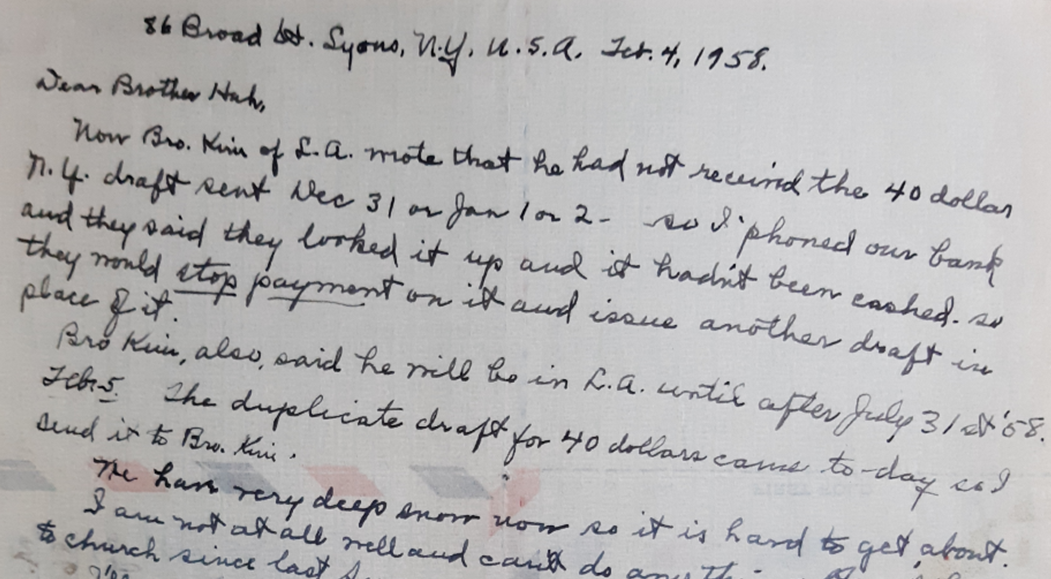 86 Broad St. Lyons, N.Y. U.S.A. Feb. 4, 1958.
Dear Brother Huh,
Now Bro. Kim of L.A. wrote that he had not received the 40 dollar
N.Y. draft sent Dec 31 or Jan 1 or 2 - so I 'phoned our bank
and they said they looked it up and it hadn't been cashed. so
they would stop payment on it and issue another draft in
place of it.
Bro Kim, also, said he will be in L.A. until after July 31st '58.
Feb. 5. The duplicate draft for 40 dollars came to-day so I
send it to Bro. Kim.
We have very deep snow now so it is hard to get about.
I am not at all well and can't do
to church since last